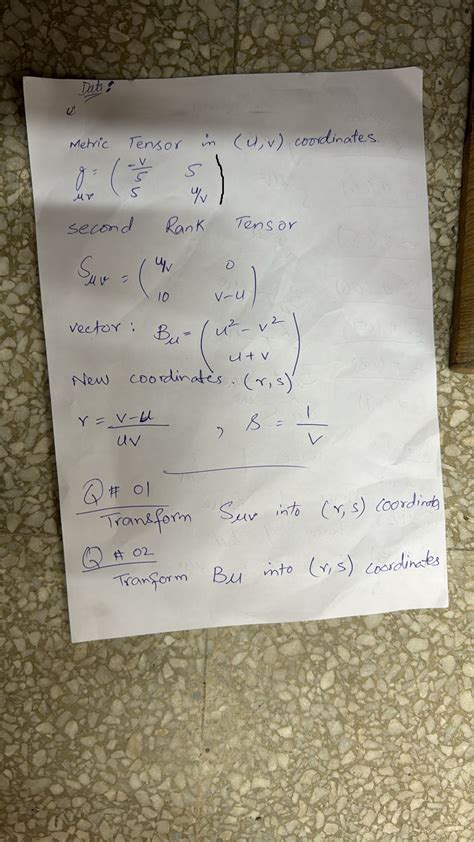 Data:
Metric Tensor in (u,v) coordinates.
g_μν = ( -v/5 5
5 u/v )
second Rank Tensor
S_μν = ( u/v 0
10 v-u )
vector: B_μ = ( u² - v²
u+v )
New coordinates. (r,s)
r = v-u/uv , s = 1/v
Q # 01
Transform S_μν into (r,s) coordinates
Q # 02
Tranform B_μ into (r,s) coordinates